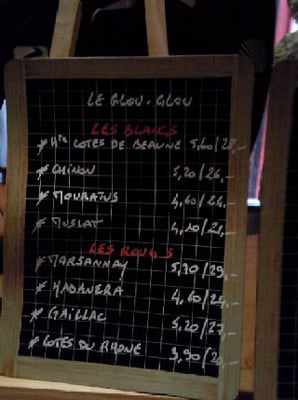 LE GLOU-GLOU
LES BLANCS
* Hte COTES DE BEAUNE 5,60/28,-
* CHINON 5,20/26,-
* MOURATUS 4,60/24,-
* MUSCAT 4,10/21,-
LES ROUGES
* MARSANNAY 5,90/29,-
* HABANERA 4,60/24,-
* GAILLAC 5,20/27,-
* COTES DU RHONE 3,90/20,-